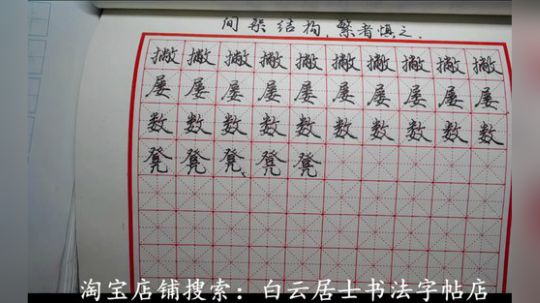 间架结构,繁者慎之.
撇撇撇撇撇撇撇撇撇撇
屡屡屡屡屡屡屡屡屡屡
数数数数数数数数数数
凳凳凳凳凳
淘宝店铺搜索：白云居士书法字帖店